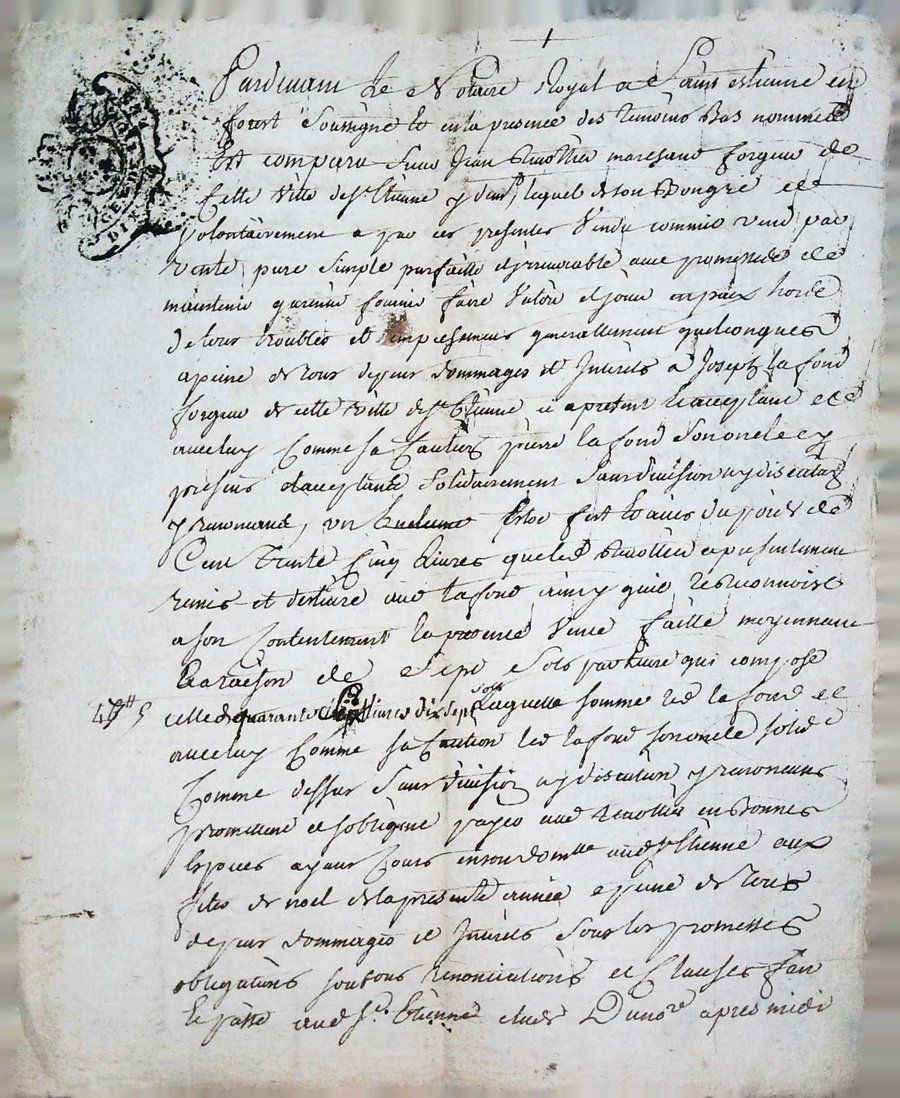 GEN
DIX
Pardevant Le Notaire Royal a Saint estienne en
forest Soussigne et en la presence des temoins Bas nommes
Est comparu Sieur Jean marchand forgeur de
Cette Ville de St Etienne y demt lequel de son Bongré et
volontairement a par ces presentes Vendu comme vend par
vente pure Simple parfaitte et irrevocable avec promesse de
maintenir garentir fournir faire Valoir et jouir en paix hors
de tous troubles et empeschemens generallement quelconques
a peine de tous depens dommages et Interets a Joseph la fond
forgeur de cette Ville de St Etienne ci apresent et acceptant et
avec luy Comme sa Caution pierre la fond son oncle cy
present et acceptant Solidairement Sans division ny discution
y renoncant, un Enclume Estoc fert et acier du poids de
Cent Trente Cinq Livres que led a presentement
remis et delivré aud Lafond ainsy quil le reconnoist
a son Contentement la presente Vente faitte moyennant
la raison de Sept Sols par livre qui compose
47tt 5
celle de quarante sept livres dix sept sols Laquelle somme led la fond et
avec luy Comme sa Caution led la fond son oncle solid.
Comme dessus Sans division ny discution y renoncans
promettent et sobligent payer aud en Bonnes
Especes ayant Cours en son domlle aud St Etienne aux
fetes de noel de la presente année a peine de tous
depens dommages et Interets Sous les promesses
obligations renonciations et Clauses fait
et passé aud St Etienne etude D. nore apres midi